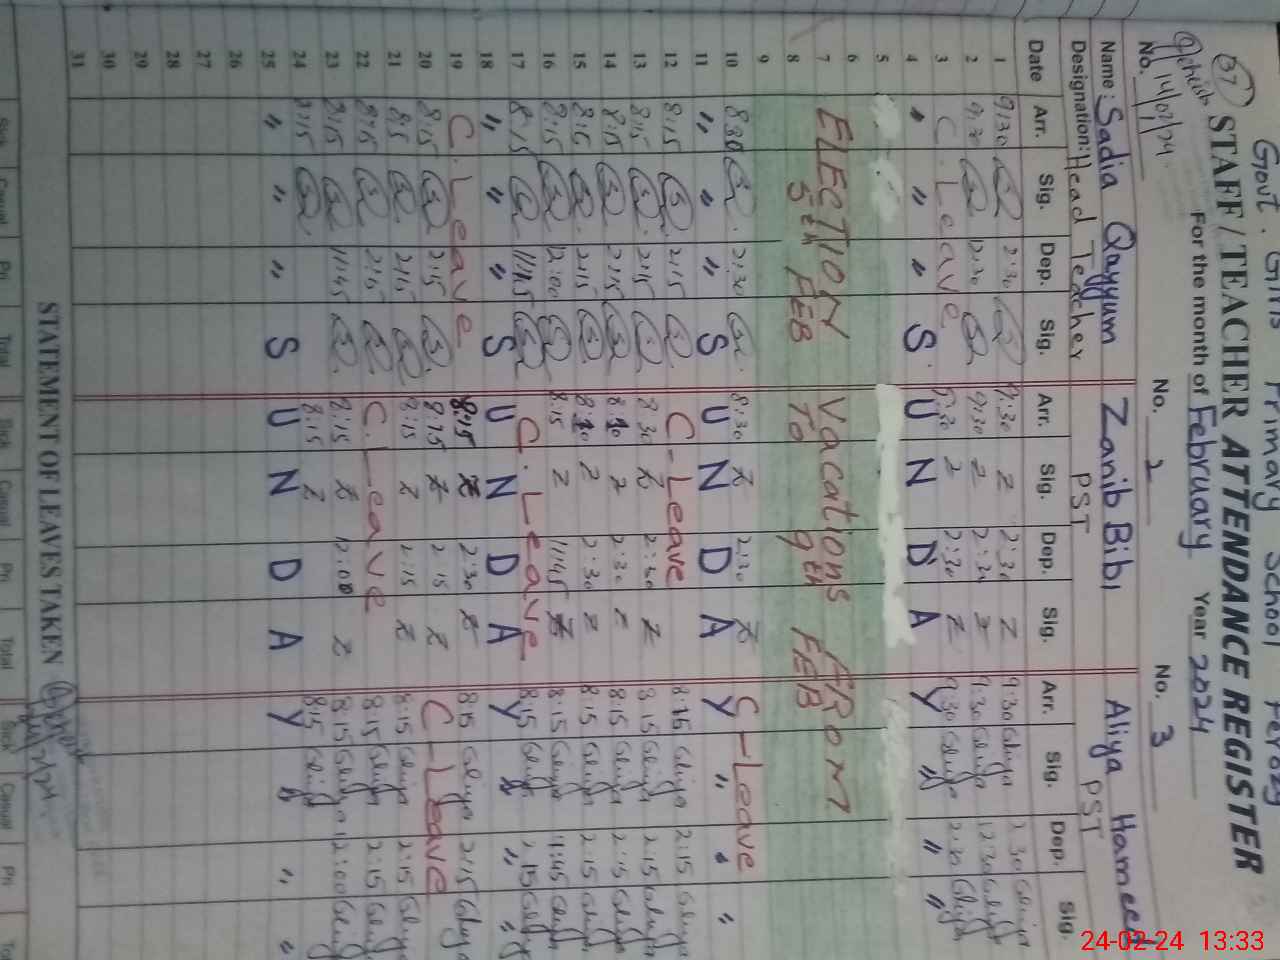 Govt. Girls Primary School Feroz
37 STAFF / TEACHER ATTENDANCE REGISTER
For the month of February Year 2024
14/02/24
No. 1 No. 2 No. 3
Name: Sadia Qayyum Zanib Bibi Aliya Hameed
Designation: Head Teacher PST PST
Date Arr. Sig. Dep. Sig. Arr. Sig. Dep. Sig. Arr. Sig. Dep. Sig.
1 9:30 2:30 9:30 Z 2:30 Z 9:30 Aliya 2:30 Aliya
2 9:30 12:30 9:30 Z 2:30 Z 9:30 Aliya 12:30 Aliya
3 C. Leave 9:30 Z 2:30 Z 9:30 Aliya 2:30 Aliya
4 " " " S U N D A Y " " "
5
6
7 ELECTION Vacations FROM
8 5th FEB To 9th FEB
9
10 8:30 2:30 8:30 Z 2:30 Z C-Leave
11 " " " S U N D A Y " " "
12 8:15 2:15 C-Leave 8:15 Aliya 2:15 Aliya
13 8:15 2:15 8:30 Z 2:30 Z 8:15 Aliya 2:15 Aliya
14 8:15 2:15 Z 2:30 Z 8:15 Aliya 2:15 Aliya
15 8:15 2:15 Z 2:30 Z 8:15 Aliya 2:15 Aliya
16 8:15 12:00 8:15 Z 11:45 Z 8:15 Aliya 11:45 Aliya
17 8:15 11:45 C. Leave 8:15 Aliya 2:15 Aliya
18 " " " S U N D A Y " " "
19 C. Leave 8:15 Z 2:30 Z 8:15 Aliya 2:15 Aliya
20 8:15 2:15 8:15 Z 2:15 Z C-Leave
21 8:15 2:15 8:15 Z 2:15 Z 8:15 Aliya 2:15 Aliya
22 8:15 2:15 C. Leave 8:15 Aliya 2:15 Aliya
23 8:15 11:45 8:15 Z 12:00 Z 8:15 Aliya 12:00 Aliya
24 8:15 8:15 Z 8:15 Aliya
25 " " " S U N D A Y " " "
26
27
28
29
30
31
STATEMENT OF LEAVES TAKEN
Sick Casual Pri Total Sick Casual Pri Total Sick Casual Pri Tot
24-02-24 13:33